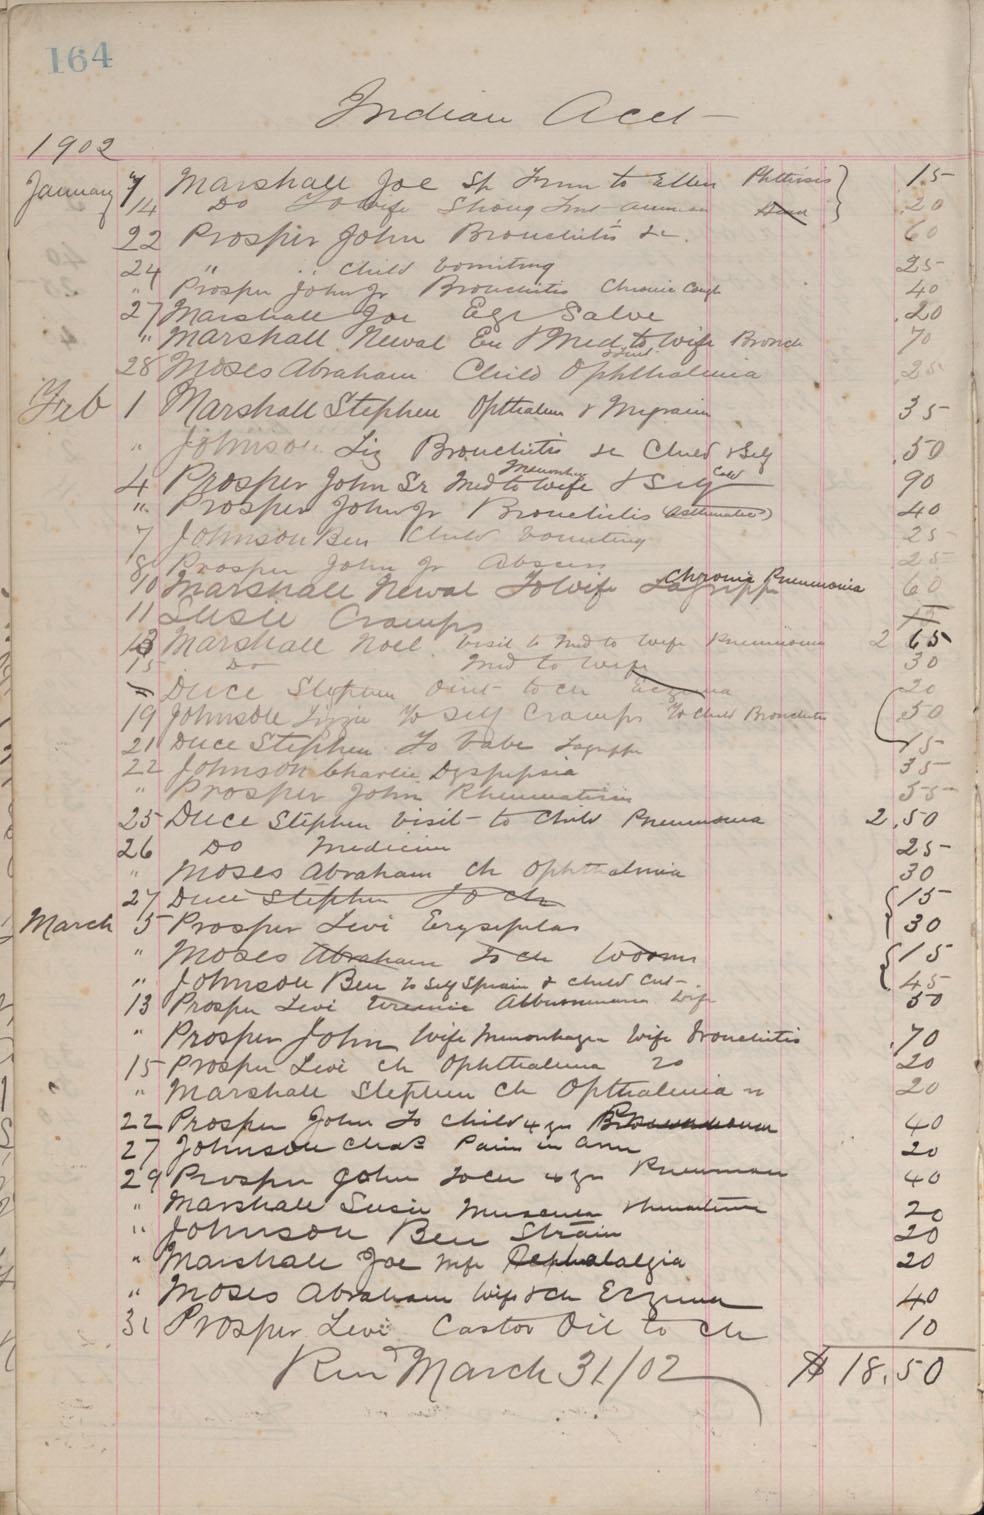 164
Indian Acct
1902
January 7 Marshall Joe to Ellen Phthisis 15
14 Do To wife 20
22 Prosper John Bronchitis &c. 60
24 " " Child Vomiting 25
" Prosper John Jr Bronchitis Chronic Cough 40
27 Marshall Joe Salve .20
" Marshall Newal & Med to Wife Bronch 70
28 Moses Abraham Child Oint Ophthalmia 25
Feb 1 Marshall Stephen Opthalm & Migrain 35
" Johnson Liz Bronchitis &c Child & Self .50
4 Prosper John Sr Med to wife & Self Cold 90
" Prosper John Jr Bronchitis (asthmatic) 40
7 Johnson Ben Child Vomiting 25
8 Prosper John Jr Abscess 25
10 Marshall Newal To Wife Lagrippe chronic Pneumonia 60
11 Susie Cramps
13 Marshall Noel Visit & Med to Wife Pneumonia 2 65
15 Do Med to Wife 30
" Duce Stephen Oint to ch Eczema 20
19 Johnson Lizzie To Self Cramps To Child Bronchitis .50
21 Duce Stephen To babe Lagrippe 15
22 Johnson Charlie Dyspepsia 35
" Prosper John Rheumatism 35
25 Duce Stephen Visit to Child Pneumonia 2.50
26 Do Medicine 25
" Moses Abraham Ch Ophthalmia 30
27 Duce Stephen To Ch 15
March 5 Prosper Levi Erysipelas 30
" Moses Abraham To ch Worms 15
" Johnson Ben to Self Sprain & Child Cut 45
13 Prosper Levi Wife 50
" Prosper John Wife Wife Bronchitis .70
15 Prosper Levi Ch Ophthalmia 20 20
" Marshall Stephen Ch Opthalmia 20
22 Prosper John To Child 4 yr 40
27 Johnson Chas Pain in Arm 20
29 Prosper John To Ch 4 yr Pneumonia 40
" Marshall Susie Muscular rheumatism 20
" Johnson Ben Strain 20
" Marshall Joe Wife Cephalalgia 20
" Moses Abraham Wife & Ch Eczema 40
31 Prosper Levi Castor Oil to ch 10
March 31/02 $18.50